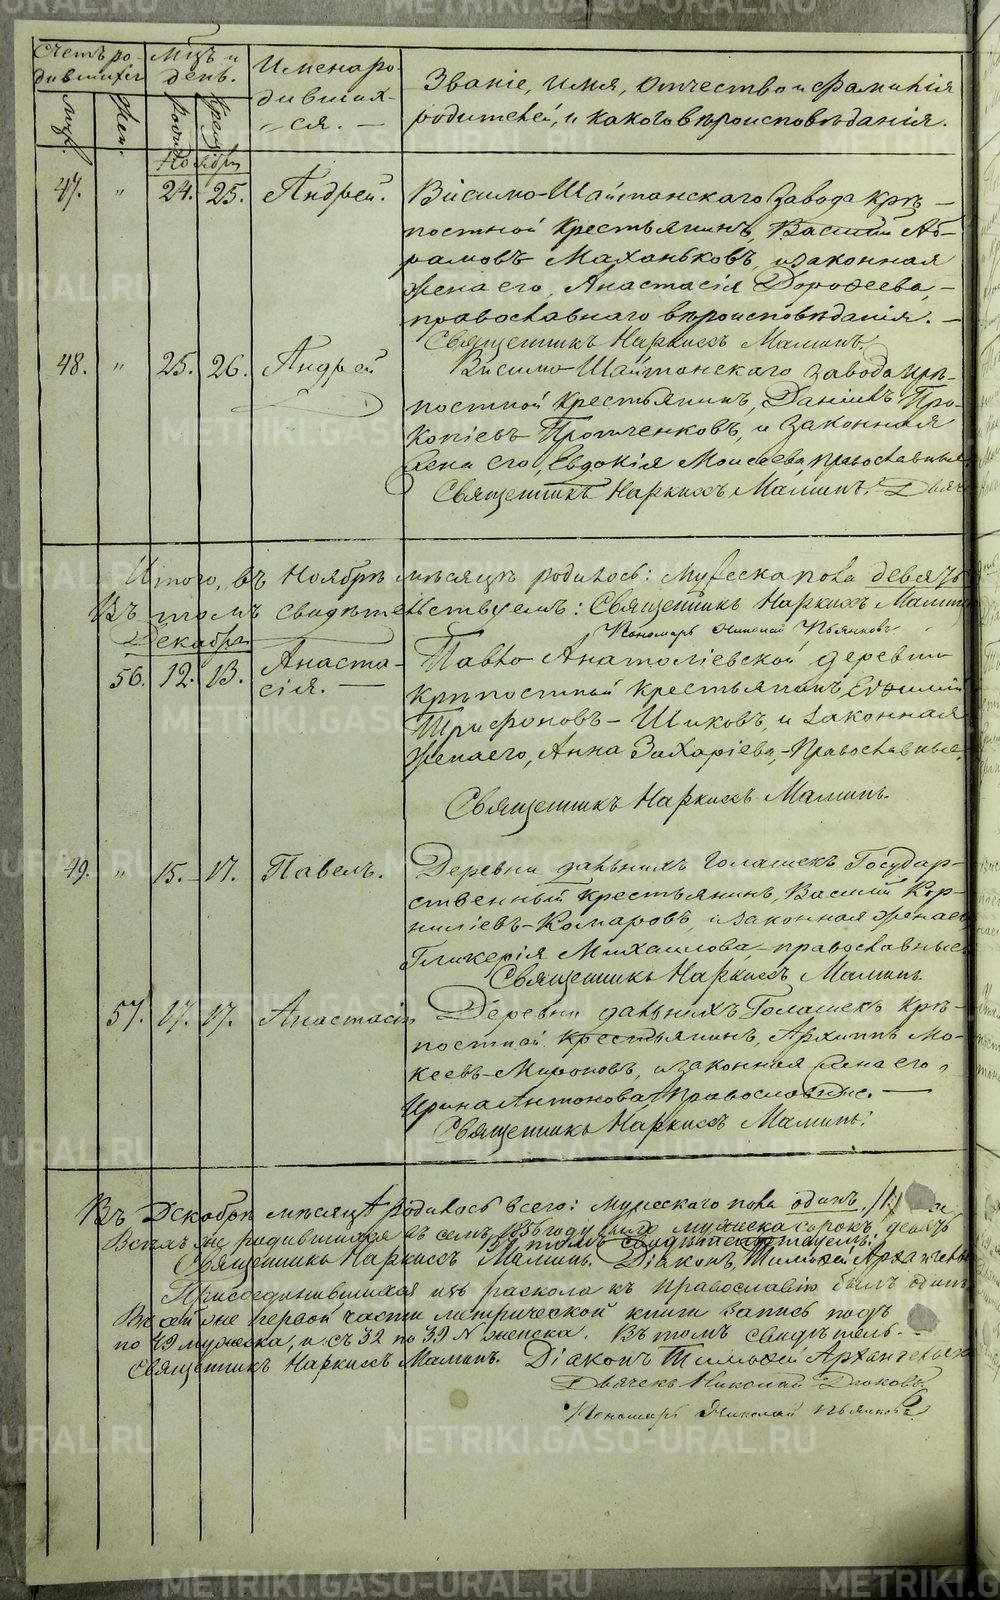 METRIKI.GASO-URAL.RU
Счетъ ро-
дившихся
Мцъ и
день.
Имена ро-
дивших-
ся.
Званіе, имя, отчество и фамилія
родителей, и какого вѣроисповѣданія.
муж.
жен.
рожд.
крещ.
Ноября
47. " 24. 25. Андрей.
Висимо-Шайтанскаго завода крѣ-
постной крестьянинъ, Василій Аб-
рамовъ Маханьковъ, и законная
жена его, Анастасія Дорофеева,
православнаго вѣроисповѣданія.
Священникъ Наркисъ Маминъ.
48. " 25. 26. Андрей
Висимо-Шайтанскаго завода крѣ-
постной крестьянинъ, Даніилъ Про-
копіевъ, и законная
жена его, Евдокія Моисеева, православные.
Священникъ Наркисъ Маминъ.
Итого, въ Ноябрѣ мѣсяцѣ родилось: мужеска пола девять
Въ томъ свидѣтельствуемъ: Священникъ Наркисъ Маминъ
Пономарь Николай Пьянковъ
Декабря
56. 12. 13. Анаста-
сія.
Павло-Анатоліевской деревни
крѣпостный крестьянинъ, Евфимій
Трифоновъ-Шиковъ, и законная
жена его, Анна Захаріева,-Православные.
Священникъ Наркисъ Маминъ.
49. " 15. 17. Павелъ.
Деревни дальнихъ Галашекъ Государ-
ственный крестьянинъ, Василій Кор-
ниліевъ-Комаровъ, и законная жена его
Гликерія Михаилова, православные.
Священникъ Наркисъ Маминъ.
57. 17. 17. Анастасія
Деревни дальнихъ Галашекъ крѣ-
постной крестьянинъ, Архиппъ Мо-
кеевъ-Мироновъ, и законная жена его,
Ирина Антонова, православные.
Священникъ Наркисъ Маминъ.
Въ Декабрѣ мѣсяцѣ родилось всего: мужескаго пола одинъ,
Всѣхъ же родившихся въ семъ 1856 году было мужеска сорокъ девять
Въ томъ свидѣтельствуемъ:
Священникъ Наркисъ Маминъ. Діаконъ Тимофей Архангельскій
Присоединившихся изъ раскола къ православію былъ
первой части метрической книги запись подъ
по 49 мужеска, и съ 32 по 39 № женска. Въ томъ свидѣтель-
Священникъ Наркисъ Маминъ. Діаконъ Тимофей Архангельскій
Дьячекъ Николай
Пономарь Николай Пьянковъ